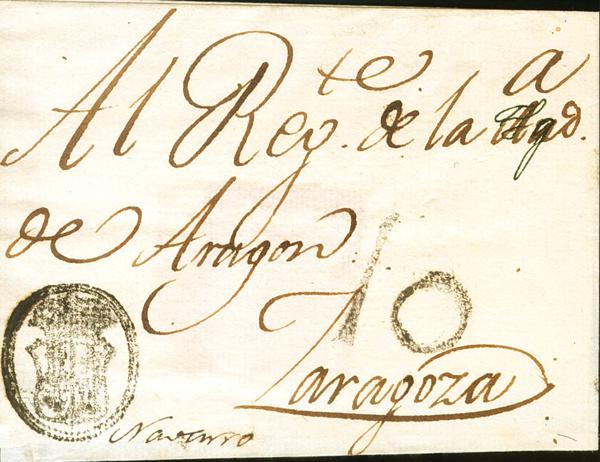 Al Reg.te de la
de Aragon
10
Zaragoza
Navarro